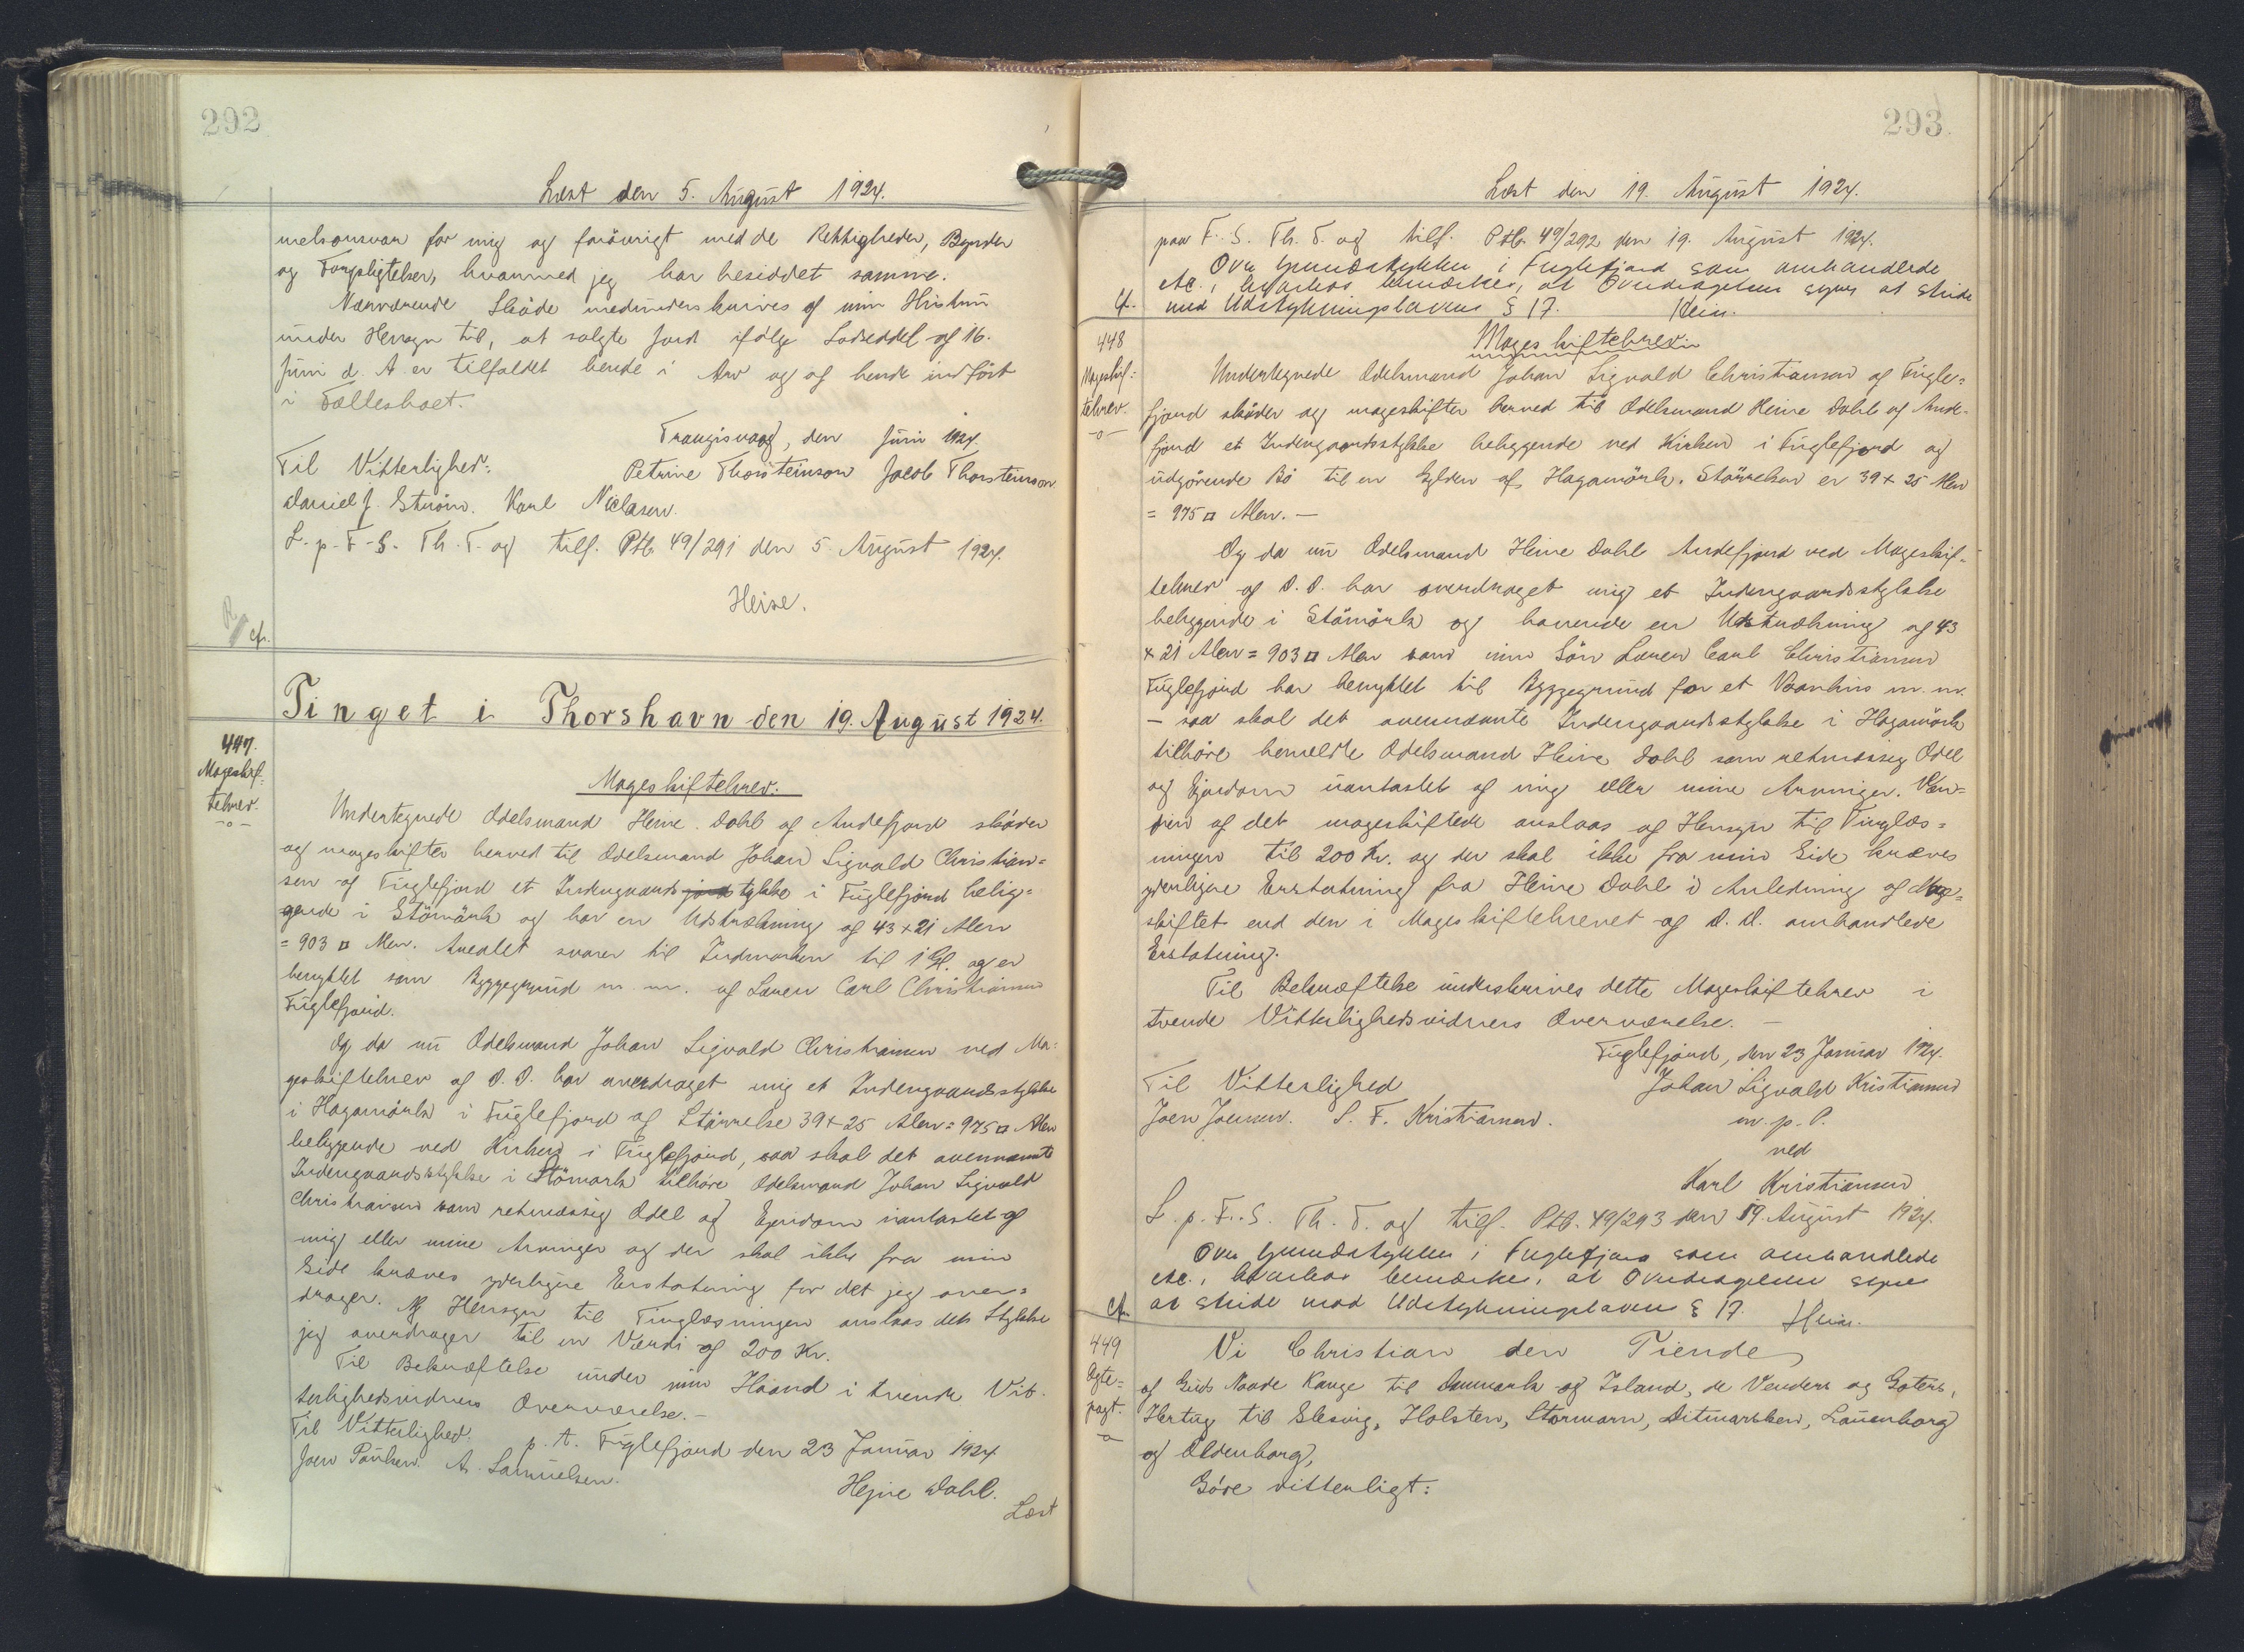 292
Læst den 5. August 1924.
melsansvar for mig og forövrigt med de Rettigheder, Byrder
og Forpligtelser, hvormed jeg har besiddet samme.
Nærværende Sköde medunderskrives af min Hustru
under Hensyn til, at solgte Jord ifölge Lodseddel af 16.
Juni d. A er tilfaldet hende i Arv og af hende indfört
i Fælleshoet.
Trangisvaag, den Juni 1924.
Til Vitterlighed: Petrine Thorsteinson Jacob Thorsteinson
Daniel J. Ström. Karl Niclasen.
L. p. F. S. Th. T. og tilf. Ptb. 49/291 den 5 August 1924.
Heise.
cfr.
Tinget i Thorshavn den 19. August 1924.
447.
Mageskif=
tebrev.
-o-
Mageskiftebrev.
Undertegnede Odelsmand Heine Dahl af Andefjord sköder
og mageskifter herved til Odelsmand Johan Sigvald Christian=
sen af Fuglefjord et Indengaards jord stykke i Fuglefjord belig=
gende i Stömörk og har en Udstrækning af 43 x 21 Alen
= 903 □ Alen. Arealet svarer til Indmarken til 1 Gl. og er
benyttet som Byggegrund m. m. af Laurn Carl Christiansen
Fuglefjord.
Og da nu Odelsmand Johan Sigvald Christiansen ved Ma=
geskiftebrev af D. D. har overdraget mig et Indengaardsstykke
i Hagamörk i Fuglefjord af Störrelse 39 x 25 Alen = 975 □ Alen
beliggende ved Kirken i Fuglefjord, saa skal det ovennævnte
Indengaardsstykke i Stömörk tilhöre Odelsmand Johan Sigvald
Christiansen som retmæssig Odel og Ejendom uantastet af
mig eller mine Arvinger og der skal ikke fra min
Side kræves yderligere Erstatning for det jeg over=
drager. Af Hensyn til Tinglæsningen anslaas det Stykke
jeg overdrager til en Værdi af 200 Kr.
Til Bekræftelse under min Haand i tvende Vit=
terlighedsvidners Overværelse.-
p. t. Fuglefjord den 23 Januar 1924
Til Vitterlighed:
Joen Poulsen. A. Samuelsen.
Hejne Dahl.
Læst
293
Læst den 19. August 1924.
paa F. S. Th. T. og tilf. Ptb. 49/292 den 19. August 1924.
Over Grundstykker i Fuglefjord som omhandlede
etc., hvorhos bemærkes, at Overdragelsen synes at stride
cfr. mod Udstykningsloven § 17. Heise.
448
Mageskif=
tebrev.
-o-
Mageskiftebrev.
Undertegnede Odelsmand Johan Sigvald Christiansen af Fugle=
fjord sköder og mageskifter herved til Odelsmand Heine Dahl af Ande-
fjord et Indengaardsstykke beliggende ved Kirken i Fuglefjord og
udgörende Bö til en Gylden af Hagamörk. Störrelsen er 39 x 25 Alen
= 975 □ Alen. —
Og da nu Odelsmand Heine Dahl Andefjord ved Mageskif=
tebrev af D. D. har overdraget mig et Indengaardsstykke
beliggende i Stömörk og havende en Udstrækning af 43
x 21 Alen = 903 □ Alen som min Sön Laurn Carl Christiansen
Fuglefjord har benyttet til Byggegrund for et Vaanhus m. m.
— saa skal det ovennævnte Indengaardsstykke i Hagamörk
tilhöre bemeldte Odelsmand Heine Dahl som retmæssig Odel
og Ejendom uantastet af mig eller mine Arvinger. Vær=
dien af det mageskiftede anslaas af Hensyn til Tinglæs=
ningen til 200 Kr. og der skal ikke fra min Side kræves
yderligere Erstatning fra Heine Dahl i Anledning af Mage=
skiftet end den i Mageskiftebrevet af D. D. omhandlede
Erstatning.
Til Bekræftelse underskrives dette Mageskiftebrev i
tvende Vitterlighedsvidners Overværelse. —
Fuglefjord, den 23 Januar 1924.
Til Vitterlighed Johan Sigvald Kristiansen
Joen Joensen. S. F. Kristiansen. m. p. P.
ved
Karl Kristiansen
L. p. F. S. Th. T. og tilf. Ptb. 49/293 den 19. August 1924.
Over Grundstykker i Fuglefjord som omhandlede
etc., hvorhos bemærkes, at Overdragelsen synes
cfr. at stride mod Udstykningsloven § 17. Heise.
449
Ægte=
pagt.
-o-
Vi Christian den Tiende
af Guds Naade Konge til Danmark og Island, de Venders og Goters,
Hertug til Slesvig, Holsten, Stormarn, Ditmarsken, Lauenborg
og Oldenborg,
Göre vitterligt: